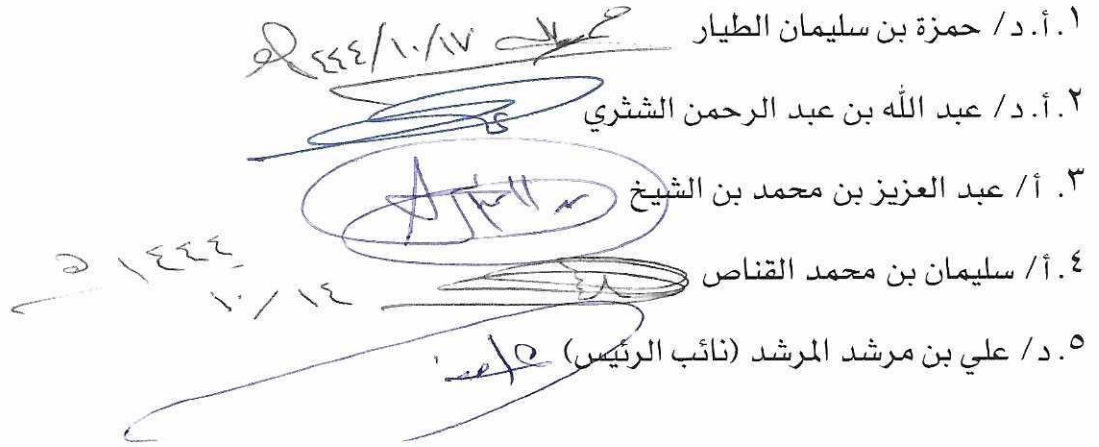 ١. أ. د/ حمزة بن سليمان الطيار ١٤٤٤/١٠/١٧هـ
٢. أ. د/ عبد الله بن عبد الرحمن الشثري
٣. أ/ عبد العزيز بن محمد بن الشيخ
٤. أ/ سليمان بن محمد القناص
١٤٤٤هـ
١٠/١٤
٥. د/ علي بن مرشد المرشد (نائب الرئيس)